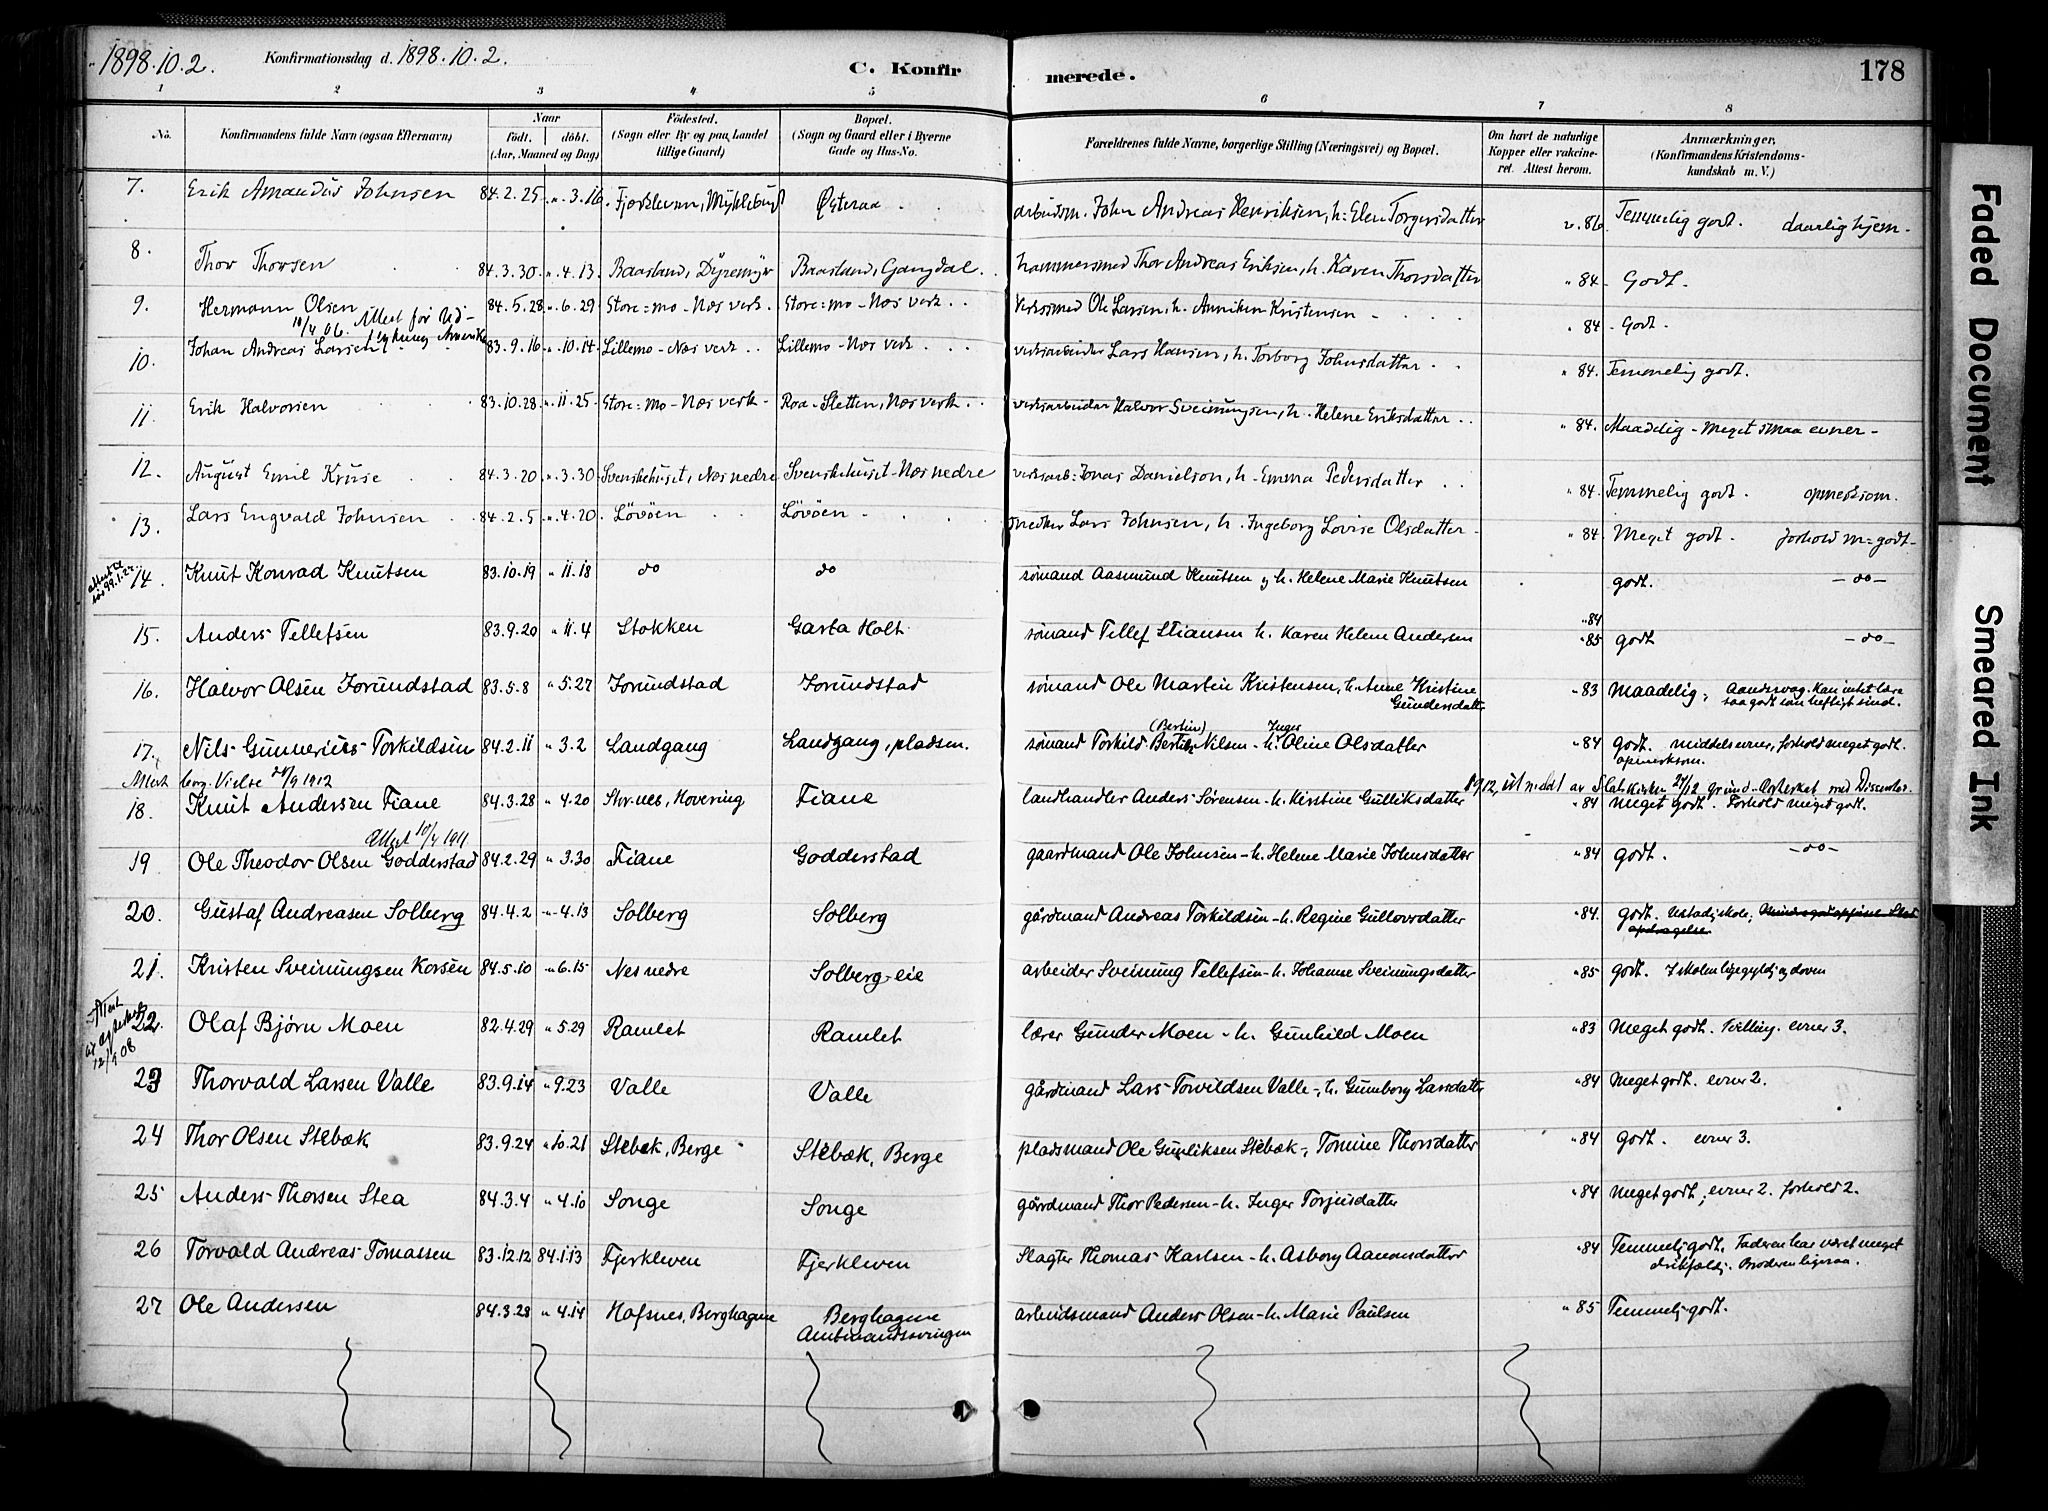 1898.10.2. Konfirmationsdag d. 1898.10.2. C. Konfir merede. 178
1 2 3 4 5 6 7 8
No. Konfirmandens fulde Navn (ogsaa Efternavn) Naar født. døbt. (Aar, Maaned og Dag) Fødested. (Sogn eller By og paa Landet tillige Gaard) Bopæl. (Sogn og Gaard eller i Byerne Gade og Hus-No. Forældrenes fulde Navne, borgerlige Stilling (Næringsvei) og Bopæl. Om havt de naturlige Kopper eller vakcineret. Attest herom. Anmærkninger. (Konfirmandens Kristendomskundskab m. V.)
7. Erik Amandus Johnsen 84.2.25. " 3.16 Fjærkleven, Myklebust Østeraa arbeidsm. John Andreas Henriksen, h. Elen Torgersdatter v. 86. Temmelig godt. daarlig hjem.
8. Thor Thorsen 84.3.30. " 4.13. Baasland, Dyremyr Baasland, Gangdal. hammersmed Thor Andreas Eriksen, h. Karen Thorsdatter " 84 Godt.
9. Hermann Olsen 84.5.28 " 6.29 Store=mo - Næs verk. Store=mo - Næs verk. verkssmed Ole Larsen, h. Anniken Kristensen " 84 - Godt.
10/4 06. Attest for Ud-
10. Johan Andreas Larsen 83.9.16 " 10.14. Lillemo - Næs verk Lillemo - Næs verk verksarbeider Lars Hansen, h. Torborg Johnsdatter " 84. Temmelig godt.
11 Erik Halvorsen 83.10.28. " 11.25 Store=mo - Næs verk - Roa-Sletten, Næs verk verksarbeider Halvor Sveinungsen, h. Helene Eriksdatter " 84. Maadelig - meget smaa evner -
12. August Emil Kruse 84.3.20 " 3.30. Svenskehuset, Næs nedre Svenskehuset - Næs nedre verksarb: Jonas Danielson, h - Emma Pedersdatter " 84. Temmelig godt. opmerksom.
13. Lars Engvald Johnsen 84.2.5 " 4.20. Løvøen Løvøen - snedker Lars Johnsen, h. Ingeborg Lovise Olsdatter - " 84 Meget godt. forhold m= godt -
14. Knut Konrad Knutsen 83.10.19 " 11.18 do do sømand Aasmund Knutsen og h. Helene Marie Knutsen godt. - do -
15. Anders Tellefsen 83.9.20 " 11.4 Stokken Garta Holt sømand Tellef Stiansen h. Karen Helene Andersen " 84 " 85 godt - do -
16. Halvor Olsen Jorundstad 83.5.8 " 5.27 Jorundstad Jorundstad sømand Ole Martin Kristensen, h. Anne Kristine Gundersdatter " 83 maadelig; Aandssvag. Kan intet lære saa godt som heftigt sind.
17. Nils Gunnerius Torkildsen 84.2.11 " 3.2 Landgang Landgang, pladsen. sømand Torkild (Bertin) Nilsen - h. Inger Oline Olsdatter " 84 godt. middels evner, forhold meget godt. opmerksom.
Attest borg. Vielse 28/9 1912
18. Knut Andersen Fiane 84.3.28 " 4.20 Hovering Fiane landhandler Anders Sørensen - h. Kirstine Gulliksdatter " 84 meget godt. Forhold meget godt.
Attest 10/4 1911
19 Ole Theodor Olsen Godderstad 84.2.29 " 3.30 Fiane Godderstad gaardmand Ole Johnsen - h. Helene Marie Johnsdatter " 84 godt. - do -
20. Gustaf Andreasen Solberg 84.4.2 " 4.13 Solberg Solberg gårdmand Andreas Torkildsen - h. Regine Gullovsdatter " 84. godt.
21. Kristen Sveinungsen Korsen 84.5.10 " 6.15 Nes nedre Solberg-eie arbeider Sveinung Tellefsen - h. Johanne Sveinungsdatter " 85 godt. I skolen ligegyldig og doven
22. Olaf Bjørn Moen 82.4.29 " 5.29 Ramlet Ramlet lærer Gunder Moen - h. Gunhild Moen " 83 Meget godt. Tvilling. evner 3.
12/9 08
23 Thorvald Larsen Valle 83.9.14 " 9.23 Valle Valle gårdmand Lars Torvildsen Valle -, h. Gunborg Larsdatter " 84 Meget godt. evner 2.
24 Thor Olsen Stebæk 83.9.24 " 10.21 Stebæk, Berge Stebæk, Berge pladsmand Ole Gunliksen Stebæk -, Tomine Thorsdatter " 84 godt. evner 3.
25 Anders Thorsen Stea 84.3.4 " 4.10 Songe Songe gårdmand Thor Pedersen - h. Inger Torjusdatter " 84 Meget godt, evner 2. forhold 2.
26 Torvald Andreas Tomassen 83.12.12 84.1.13 Fjerkleven Fjerkleven Slagter Thomas Karlsen - h. Asborg Aanonsdatter " 84 Temmelig godt. Faderen har været meget drikfældig. Broderen ligesaa.
27 Ole Andersen 84.3.28 " 4.14 Hofsnes, Berghagene Berghagene Ambmandssvingen arbeidsmand Anders Olsen - h. Marie Paulsen " 85 Temmelig godt.
Faded Document
Smeared Ink